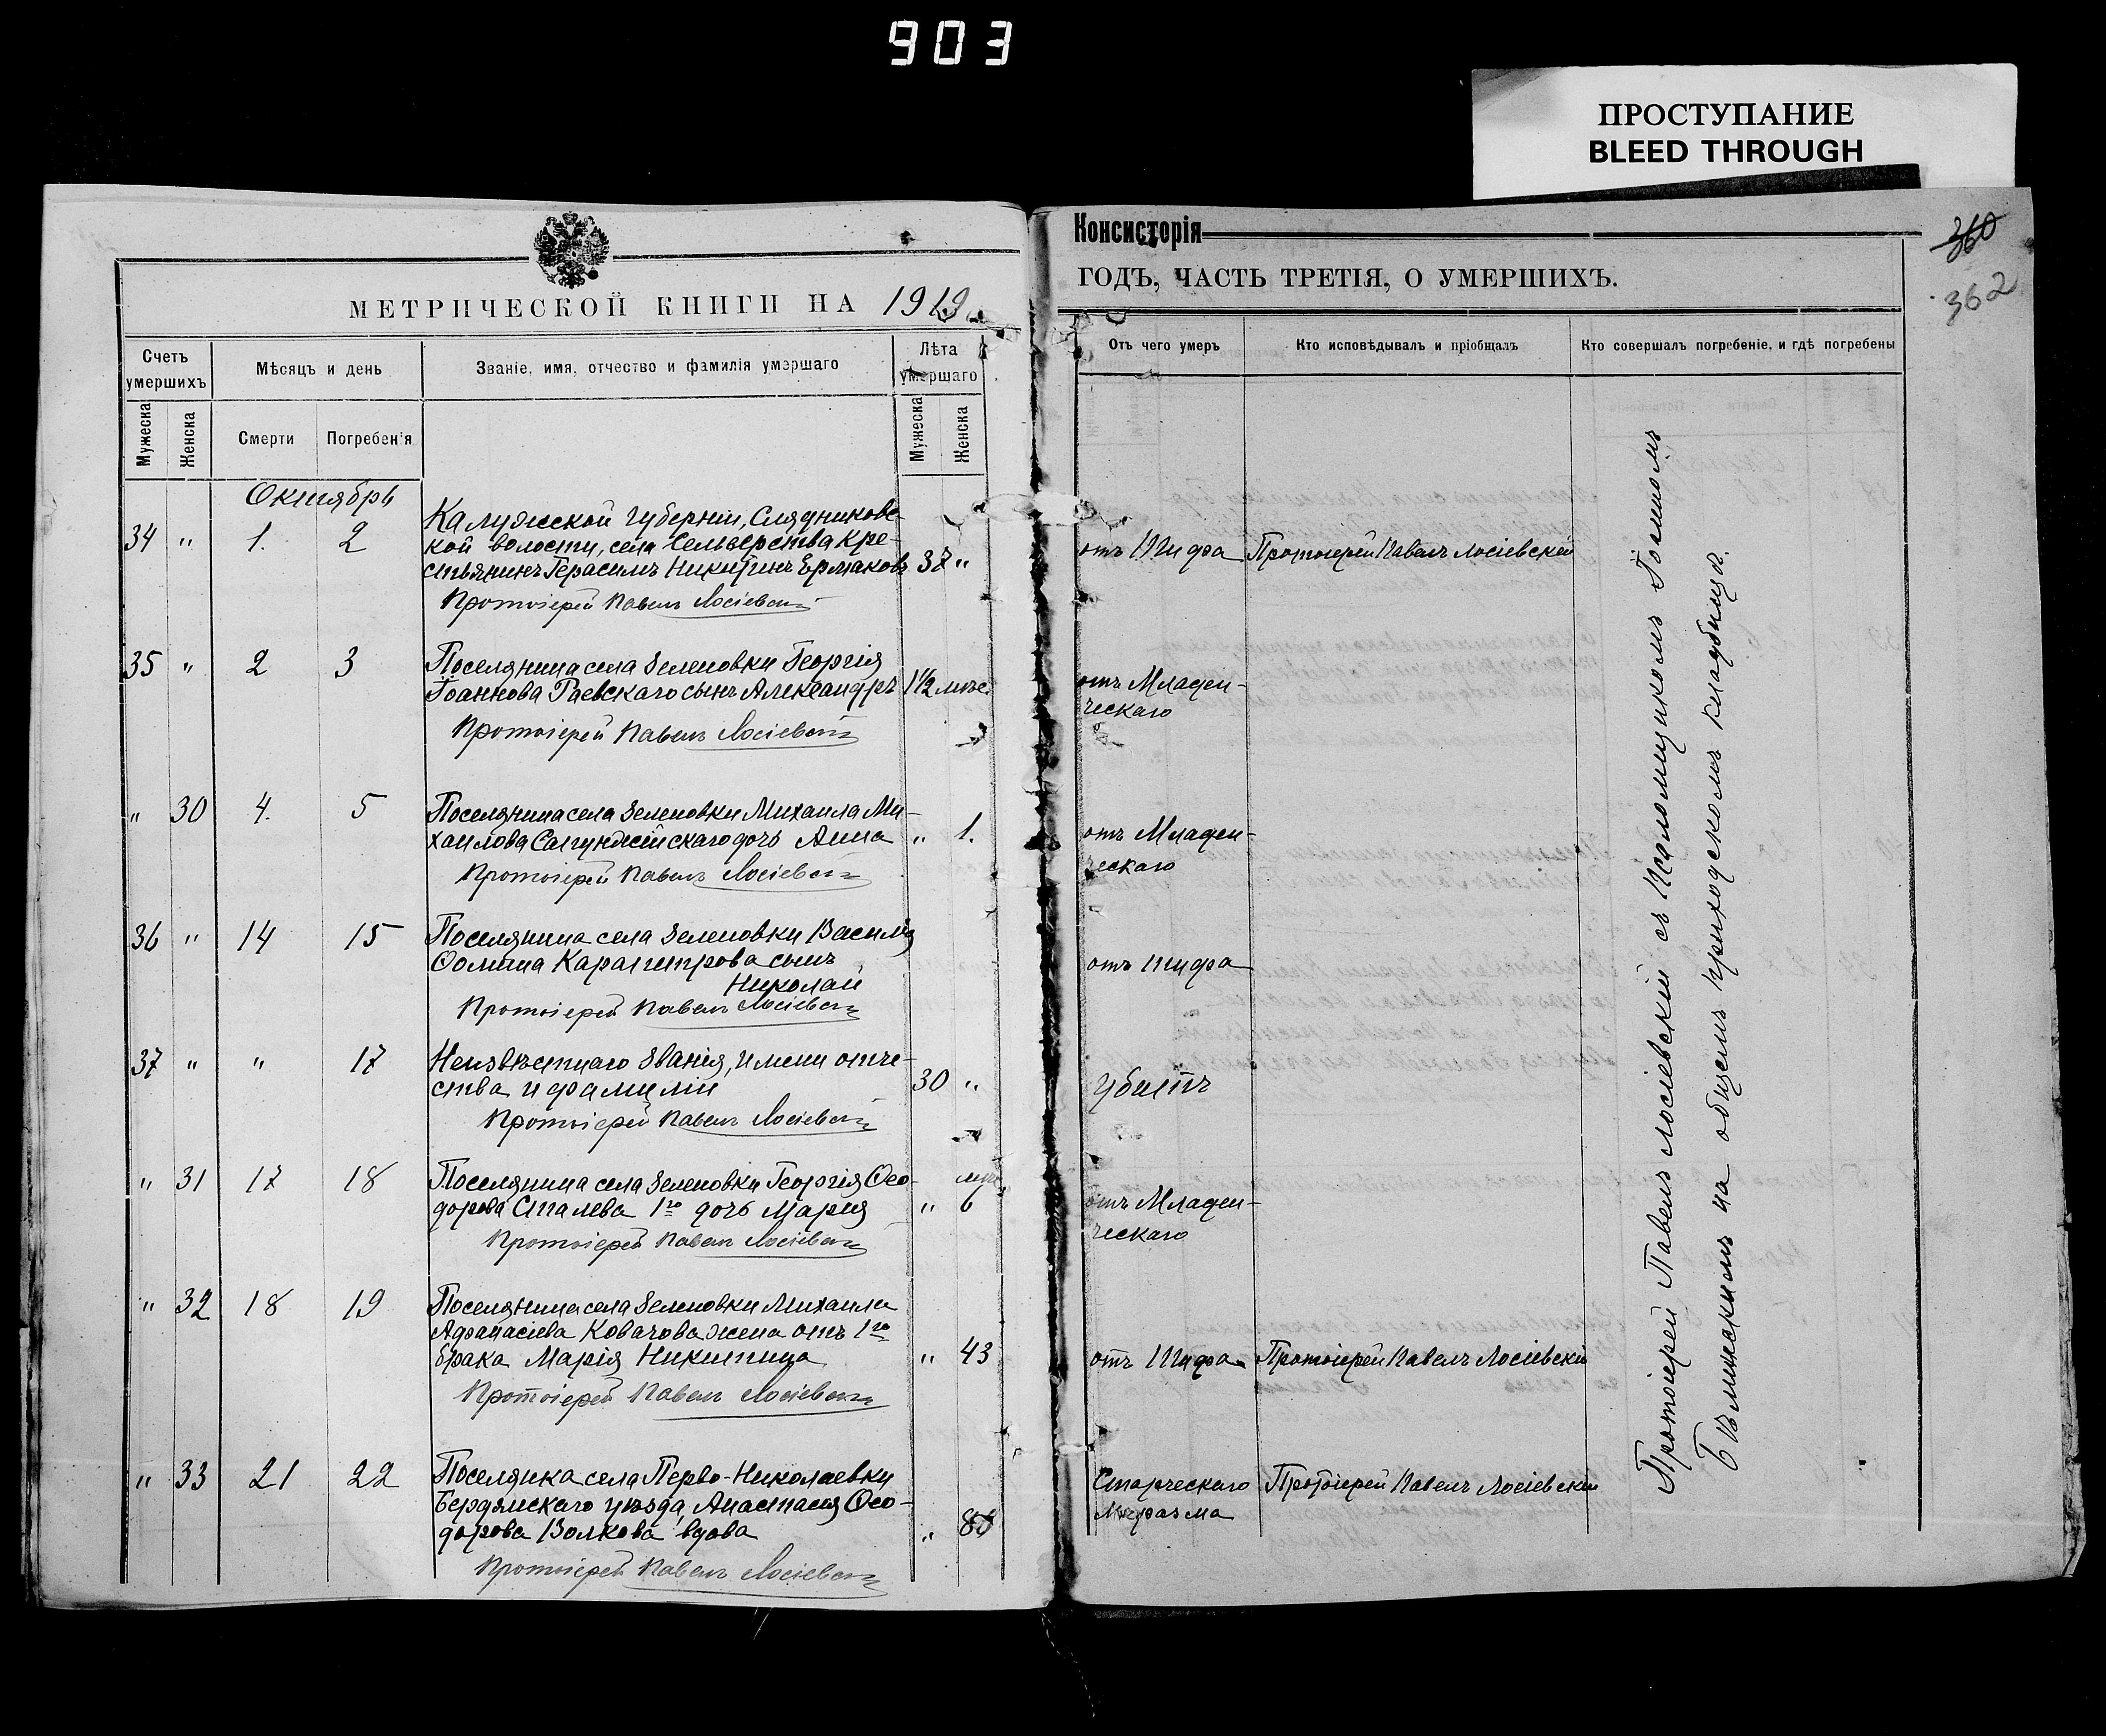 903
ПРОСТУПАНИЕ
BLEED THROUGH
МЕТРИЧЕСКОЙ КНИГИ НА 1919
Счетъ умершихъ
Мѣсяцъ и день
Званіе, имя, отчество и фамилія умершаго
Лѣта умершаго
Мужеска
Женска
Смерти
Погребенія
Мужеска
Женска
Октябрь
34 " 1. 2
Калужской губерніи,
кой волости, села Сельверства кре-
стьянинъ Герасимъ Никитинъ Ермаковъ 37 "
Протоіерей Павелъ Лосіевскій
35 " 2 3
Поселянина села Зеленовки Георгія
Іоаннова Раевскаго сынъ Александръ 1 1/2 мѣс.
Протоіерей Павелъ Лосіевскій
" 30 4. 5
Поселянина села Зеленовки Михаила Ми-
хаилова дочь Анна " 1.
Протоіерей Павелъ Лосіевскій
36 " 14 15
Поселянина села Зеленовки Василія
Ѳомина сынъ
Николай
Протоіерей Павелъ Лосіевскій
37 " " 17
Неизвѣстнаго званія, имени отче-
ства и фамиліи 30 "
Протоіерей Павелъ Лосіевскій
" 31 17 18
Поселянина села Зеленовки Георгія Ѳео-
дорова 1го дочь Марія " 6
Протоіерей Павелъ Лосіевскій
" 32 18 19
Поселянина села Зеленовки Михаила
Афанасіева Ковачова жена отъ 1го
брака Марія Никитина " 43
Протоіерей Павелъ Лосіевскій
" 33 21 22
Поселянка села Перво-Николаевки
Бердянскаго уѣзда, Анастасія Ѳео-
дорова Волкова вдова "
Протоіерей Павелъ Лосіевскій
Консисторія
360
362
ГОДЪ, ЧАСТЬ ТРЕТІЯ, О УМЕРШИХЪ.
Отъ чего умеръ
Кто исповѣдывалъ и пріобщалъ
Кто совершалъ погребеніе, и гдѣ погребены
отъ Тифа Протоіерей Павелъ Лосіевскій
отъ Младен-
ческаго
отъ Младен-
ческаго
отъ тифа
убитъ
отъ Младен-
ческаго
отъ Тифа Протоіерей Павелъ Лосіевскій
Старческаго Протоіерей Павелъ Лосіевскій
Маразма
Протоіерей Павелъ Лосіевскій съ Псаломщикомъ Іоанномъ
на общемъ приходскомъ кладбищѣ.